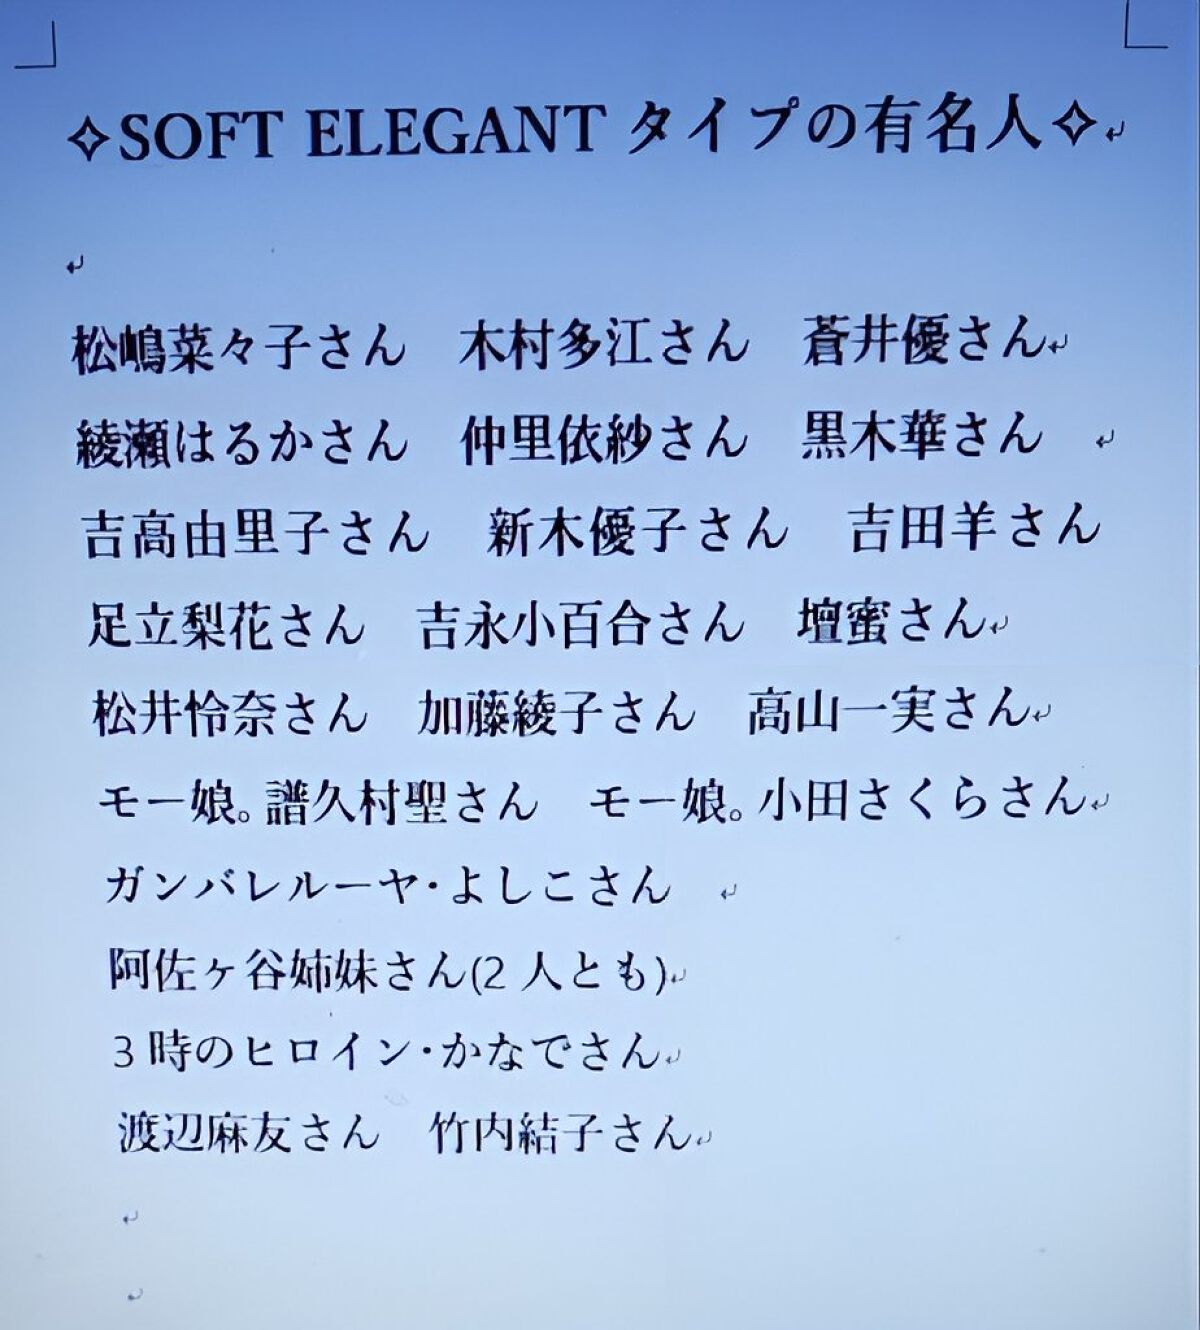 ✧SOFT ELEGANT タイプの有名人✧
松嶋菜々子さん　木村多江さん　蒼井優さん
綾瀬はるかさん　仲里依紗さん　黒木華さん
吉高由里子さん　新木優子さん　吉田羊さん
足立梨花さん　吉永小百合さん　壇蜜さん
松井怜奈さん　加藤綾子さん　高山一実さん
モー娘。譜久村聖さん　モー娘。小田さくらさん
ガンバレルーヤ・よしこさん
阿佐ヶ谷姉妹さん(2 人とも)
3 時のヒロイン・かなでさん
渡辺麻友さん　竹内結子さん